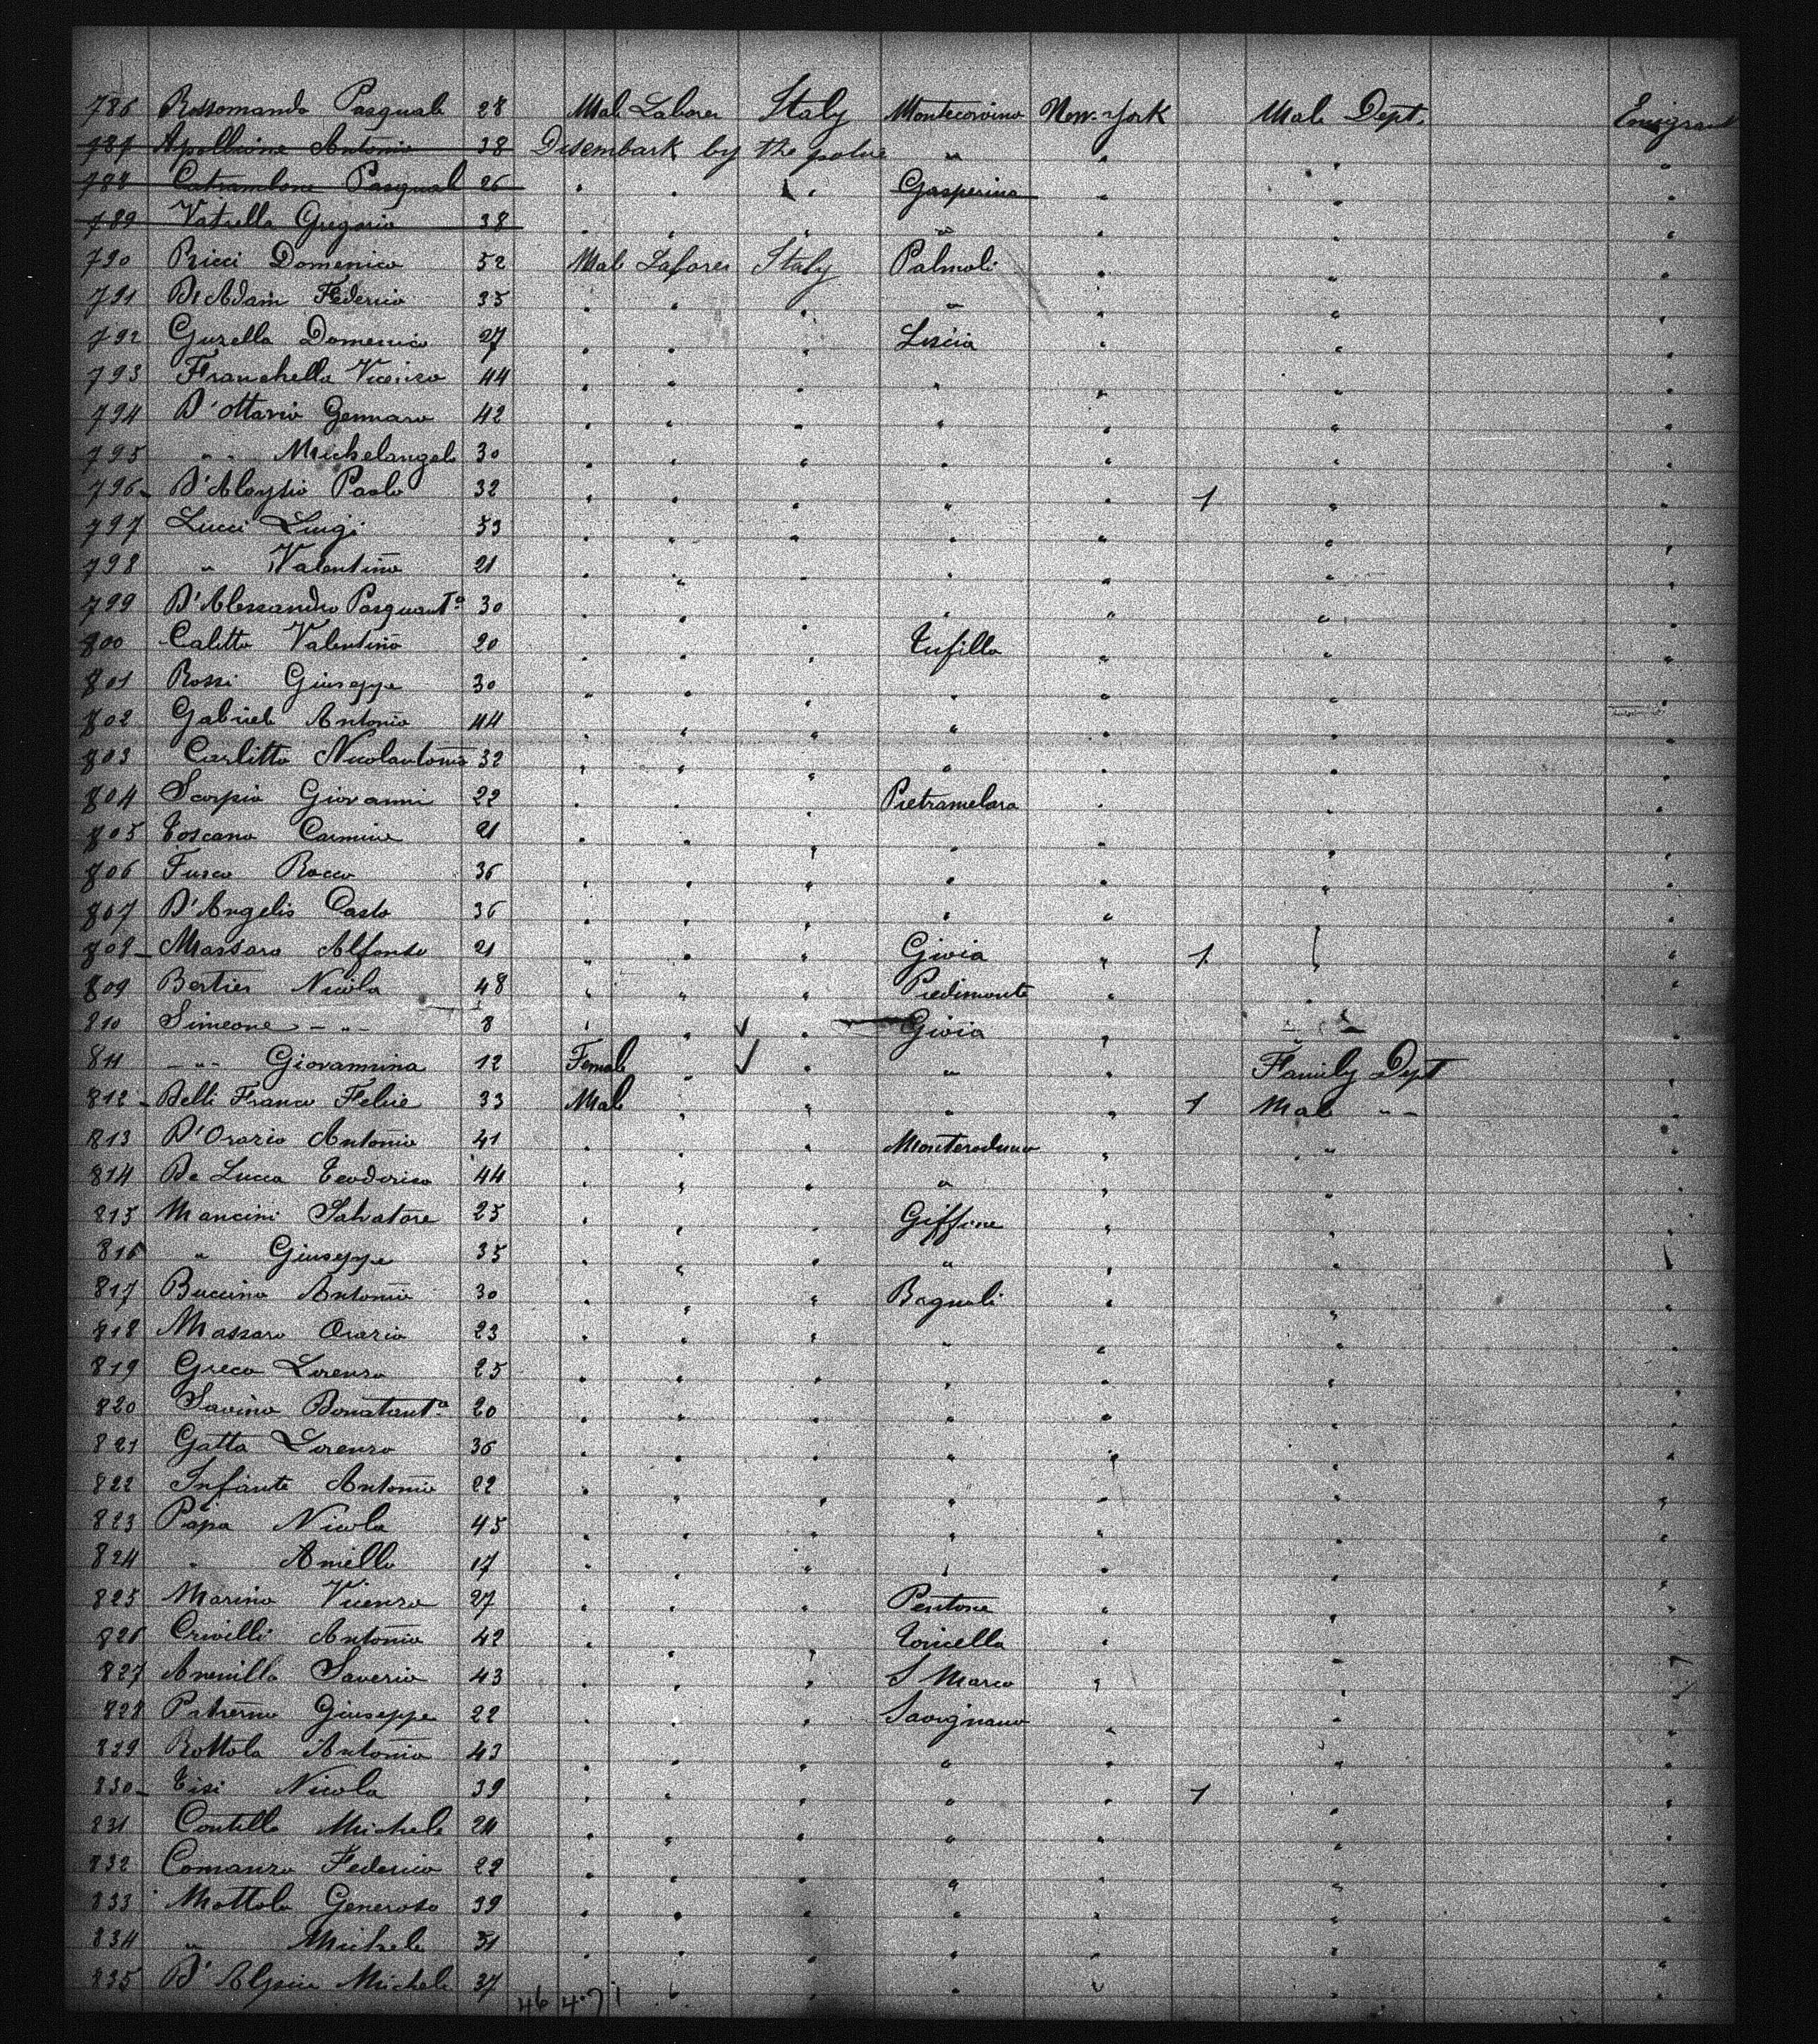 786 Rossomando Pasquale 28 Male Laborer Italy Montecorvino New-York Male Dept. Emigrant
787 Apollione Antonio 38 Disembark by the police " " " "
788 Catrambone Pasqual 26 " " " Gasperina " " "
789 Vatrella Gregorio 38 " " " " " " "
790 Ricci Domenico 52 Male Laborer Italy Palmoli " " "
791 D'Adam Federico 35 " " " " " " "
792 Guzella Domenico 27 " " " Liscia " " "
793 Franchella Vicenzo 44 " " " " " " "
794 D'Ottavio Gennaro 42 " " " " " " "
795 " " Michelangelo 30 " " " " " " "
796 - D'Aloysio Paolo 32 " " " " " 1 " "
797 Lucci Luigi 53 " " " " " " "
798 " Valentino 21 " " " " " " "
799 D'Alessandro Pasquant° 30 " " " " " " "
800 Caletta Valentino 20 " " " Tufillo " " "
801 Rossi Giuseppe 30 " " " " " " "
802 Gabriele Antonio 44 " " " " " " "
803 Carlitto Nicolantonio 32 " " " " " " "
804 Scorpio Giovanni 22 " " " Pietramelara " " "
805 Toscano Carmine 21 " " " " " " "
806 Fusco Rocco 36 " " " " " " "
807 D'Angelis Casto 36 " " " " " " "
808 - Massaro Alfonso 21 " " " Gioia " 1 " "
809 Bertier Nicola 48 " " " Piedimonte " " "
810 Simeone - " - 8 " " " Gioia " " "
811 - " - Giovannina 12 Female " " " " Family Dept "
812 - Belli Franco Felice 33 Male " " " " 1 Male " "
813 D'Orazio Antonio 41 " " " Monteroduno " " "
814 De Lucca Teodorico 44 " " " " " " "
815 Mancini Salvatore 25 " " " Giffone " " "
816 " Giuseppe 35 " " " " " " "
817 Buccino Antonio 30 " " " Bagnoli " " "
818 Massaro Orazio 23 " " " " " " "
819 Greco Lorenzo 25 " " " " " " "
820 Savino Donatant° 20 " " " " " " "
821 Gatta Lorenzo 36 " " " " " " "
822 Infante Antonio 22 " " " " " " "
823 Papa Nicola 45 " " " " " " "
824 " Aniello 17 " " " " " " "
825 Marino Vicenzo 27 " " " Pentone " " "
826 Crivelli Antonio 42 " " " Toricella " " "
827 Saverio 43 " " " S Marco " " "
828 Giuseppe 22 " " " Savignano " " "
829 Rottola Antonio 43 " " " " " " "
830 - Tisi Nicola 39 " " " " " 1 " "
831 Contillo Michele 24 " " " " " " "
832 Comanzo Federico 22 " " " " " " "
833 Mottola Generoso 39 " " " " " " "
834 " Michele 31 " " " " " " "
835 Michele 37 " " " " " "
46 47 1